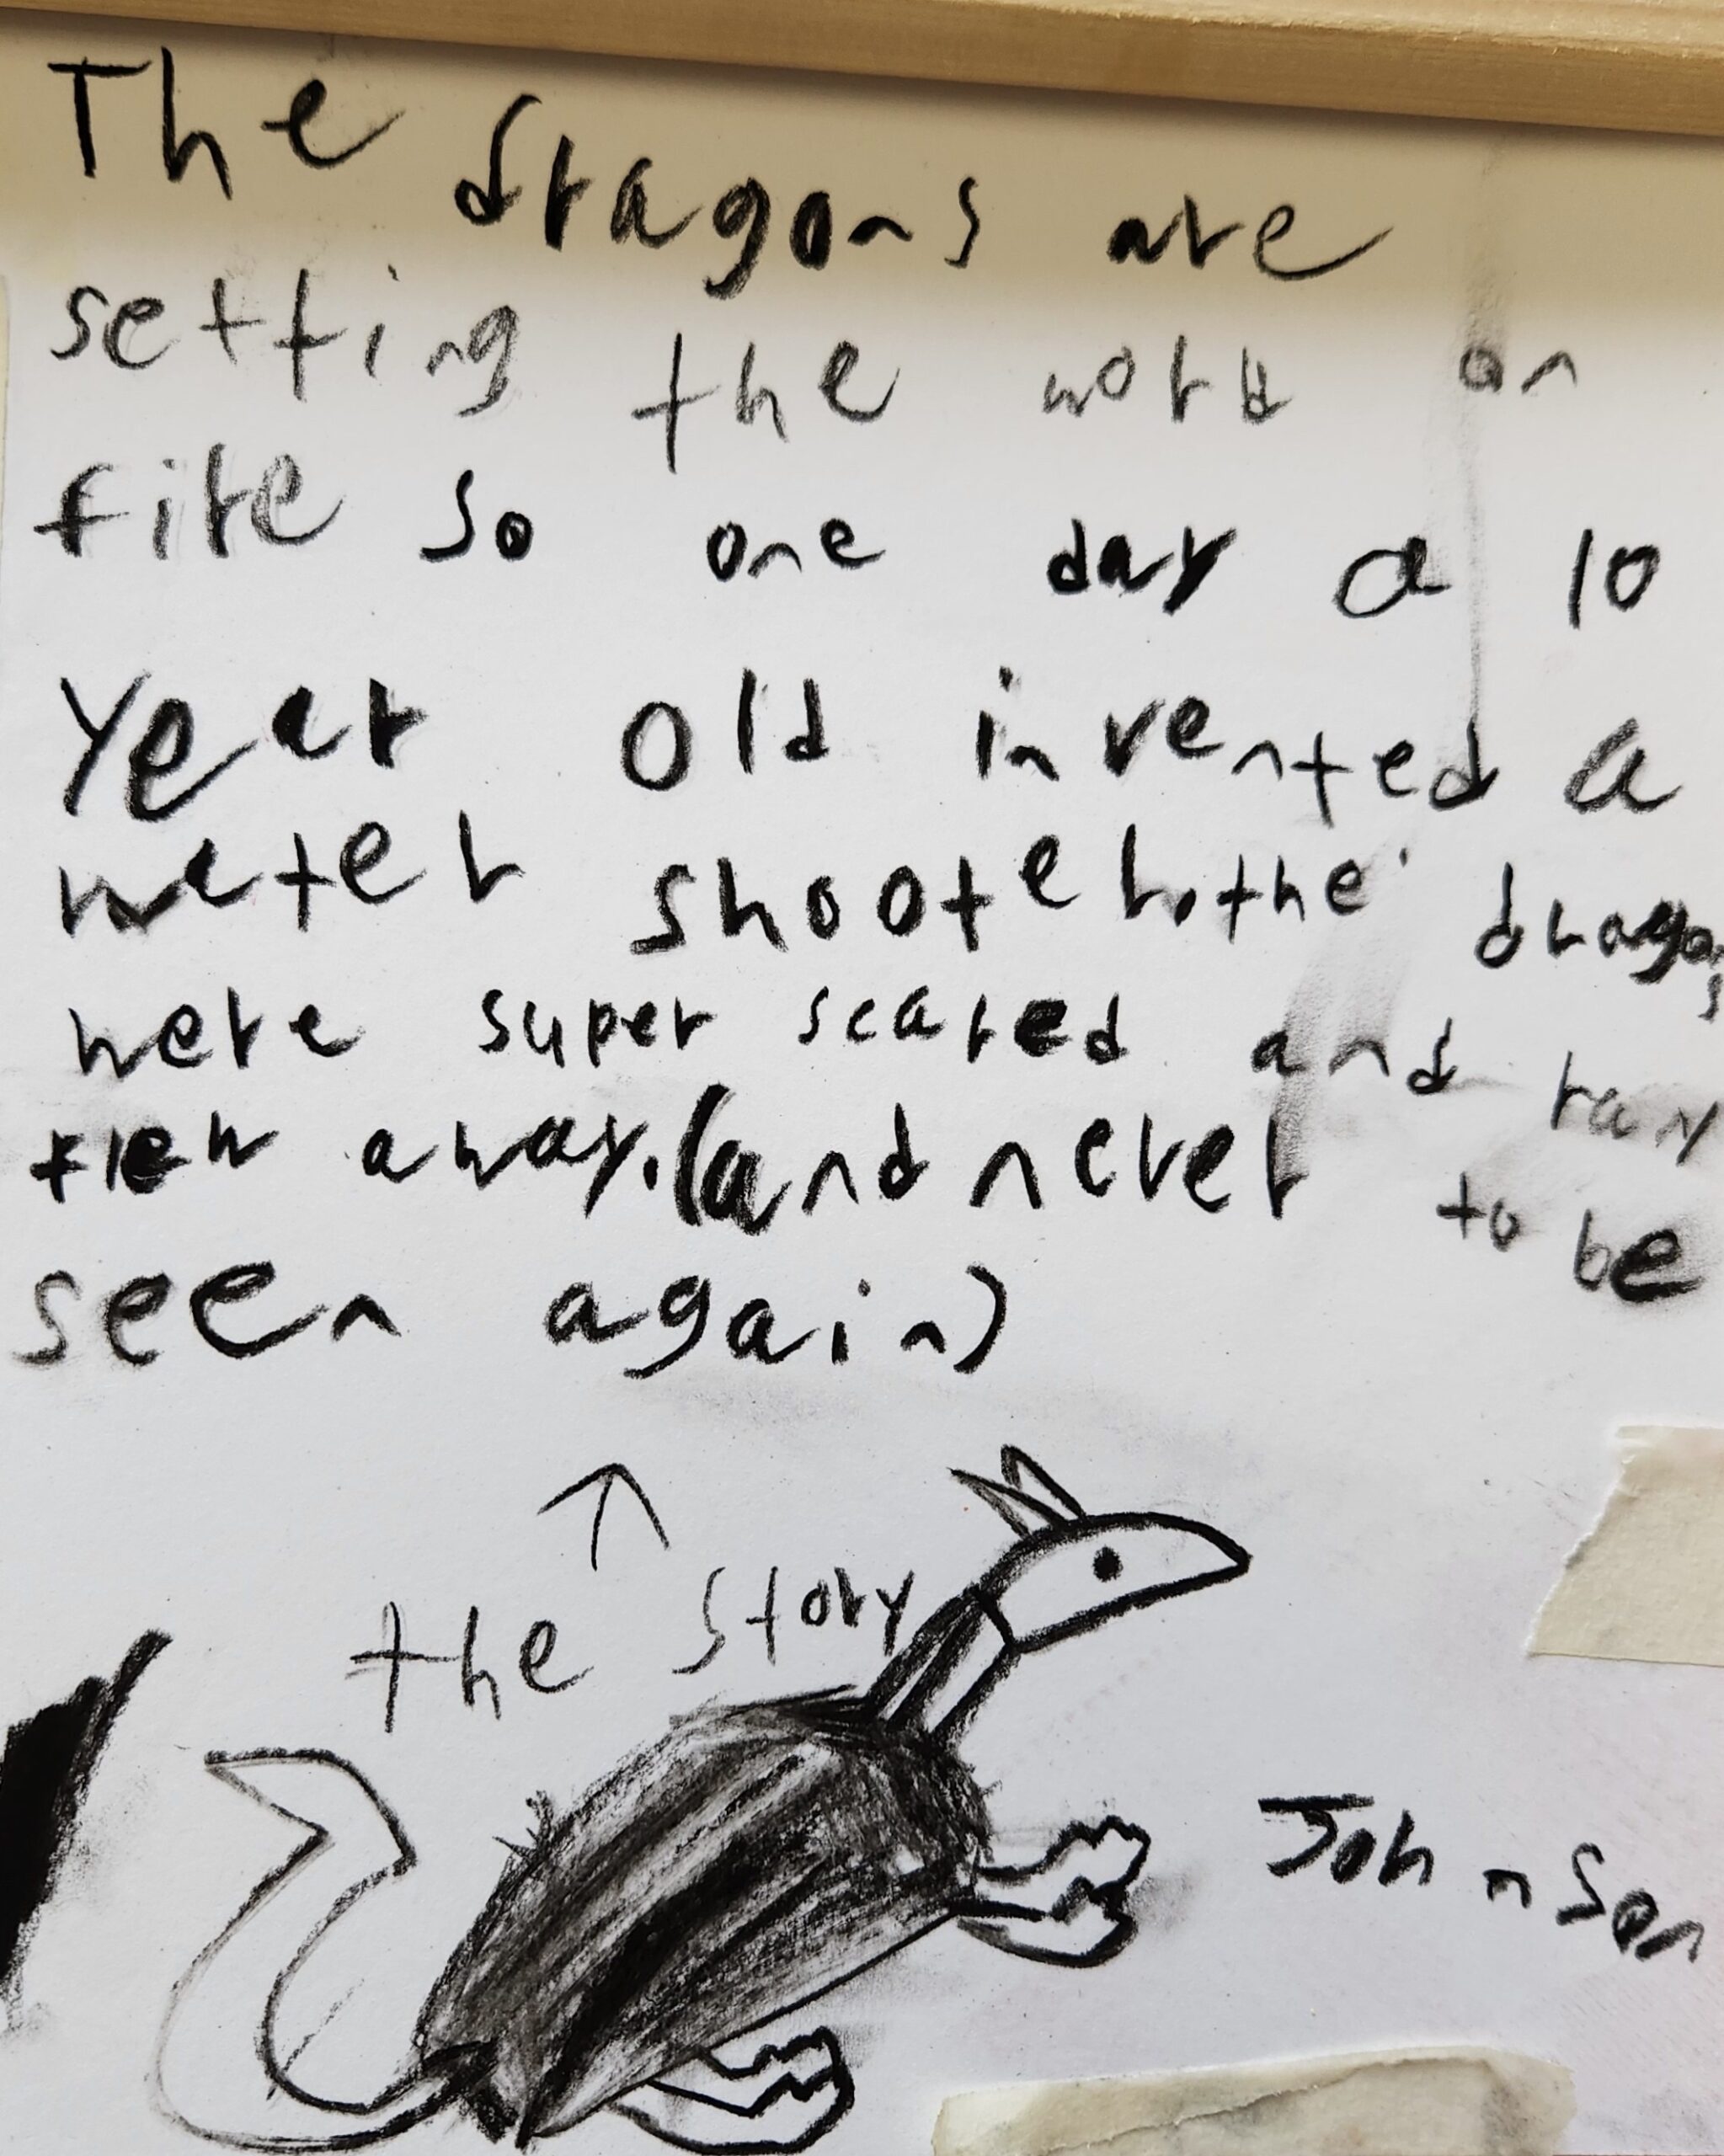 The dragons are
setting the world on
fire so one day a 10
year old invented a
water shooter. the dragons
were super scared and
flew away. (and never to be
seen again)
the story
Johnson